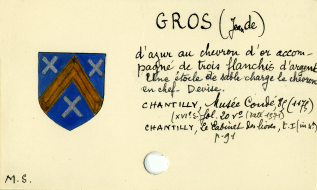 GROS (Jean de)
d'azur au chevron d'or accom-
pagné de trois flanchis d'argent
Une étoile de sable charge le chevron
en chef. Devise.
CHANTILLY, Musée Condé,
(XVIe s. fol. 20 vo
CHANTILLY, le Cabinet des livres, t. I (in 8°)
p. 91
M.S.